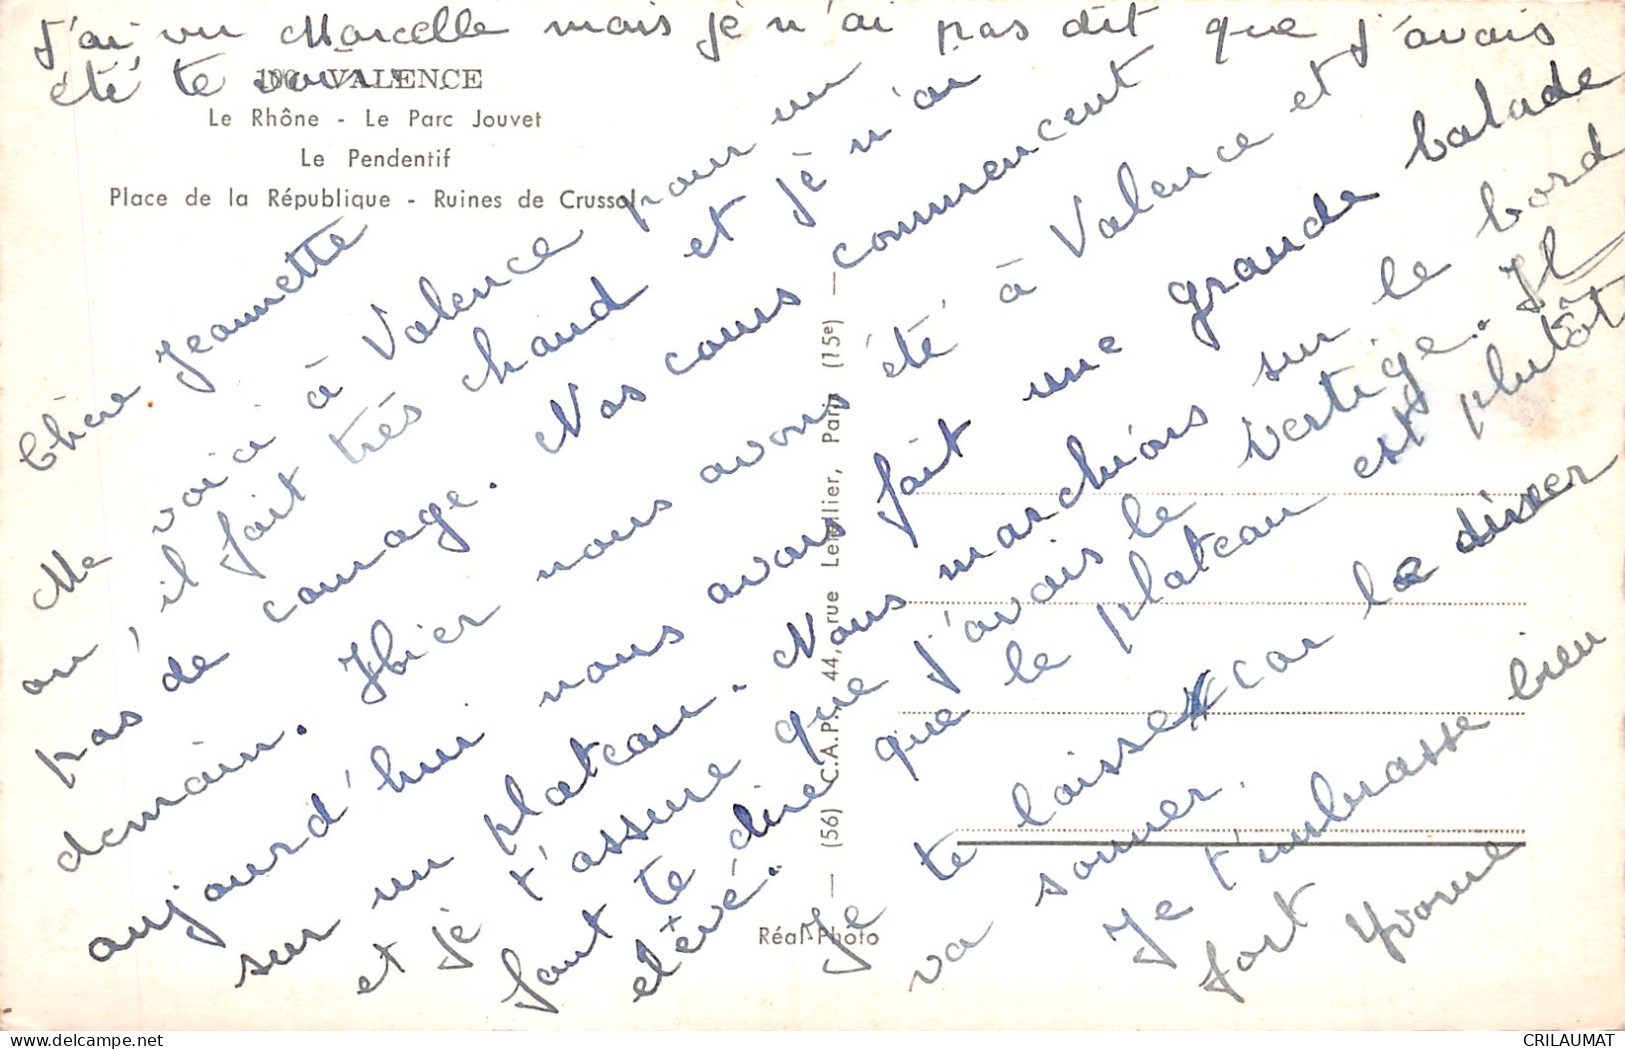 J'ai vu Marcelle mais je n'ai pas dit que j'avais
été te voir.
100 - VALENCE
Le Rhône - Le Parc Jouvet
Le Pendentif
Place de la République - Ruines de Crussol
Chère Jeannette
Me voici à Valence pour un
an, il fait très chaud et je n'ai
pas de courage. Nos cours commencent
demain. Hier nous avons été à Valence et
aujourd'hui nous avons fait une grande balade
sur un plateau. Nous marchions sur le bord
et je t'assure que j'avais le vertige. Il
faut te dire que le plateau est plutôt
élevé.
Je te laisse car le diner
va sonner.
Je t'embrasse bien
fort Yvonne
(56) — C.A.P. 44, rue Letellier, Paris (15e) —
Réal-Photo
CRILAUMAT